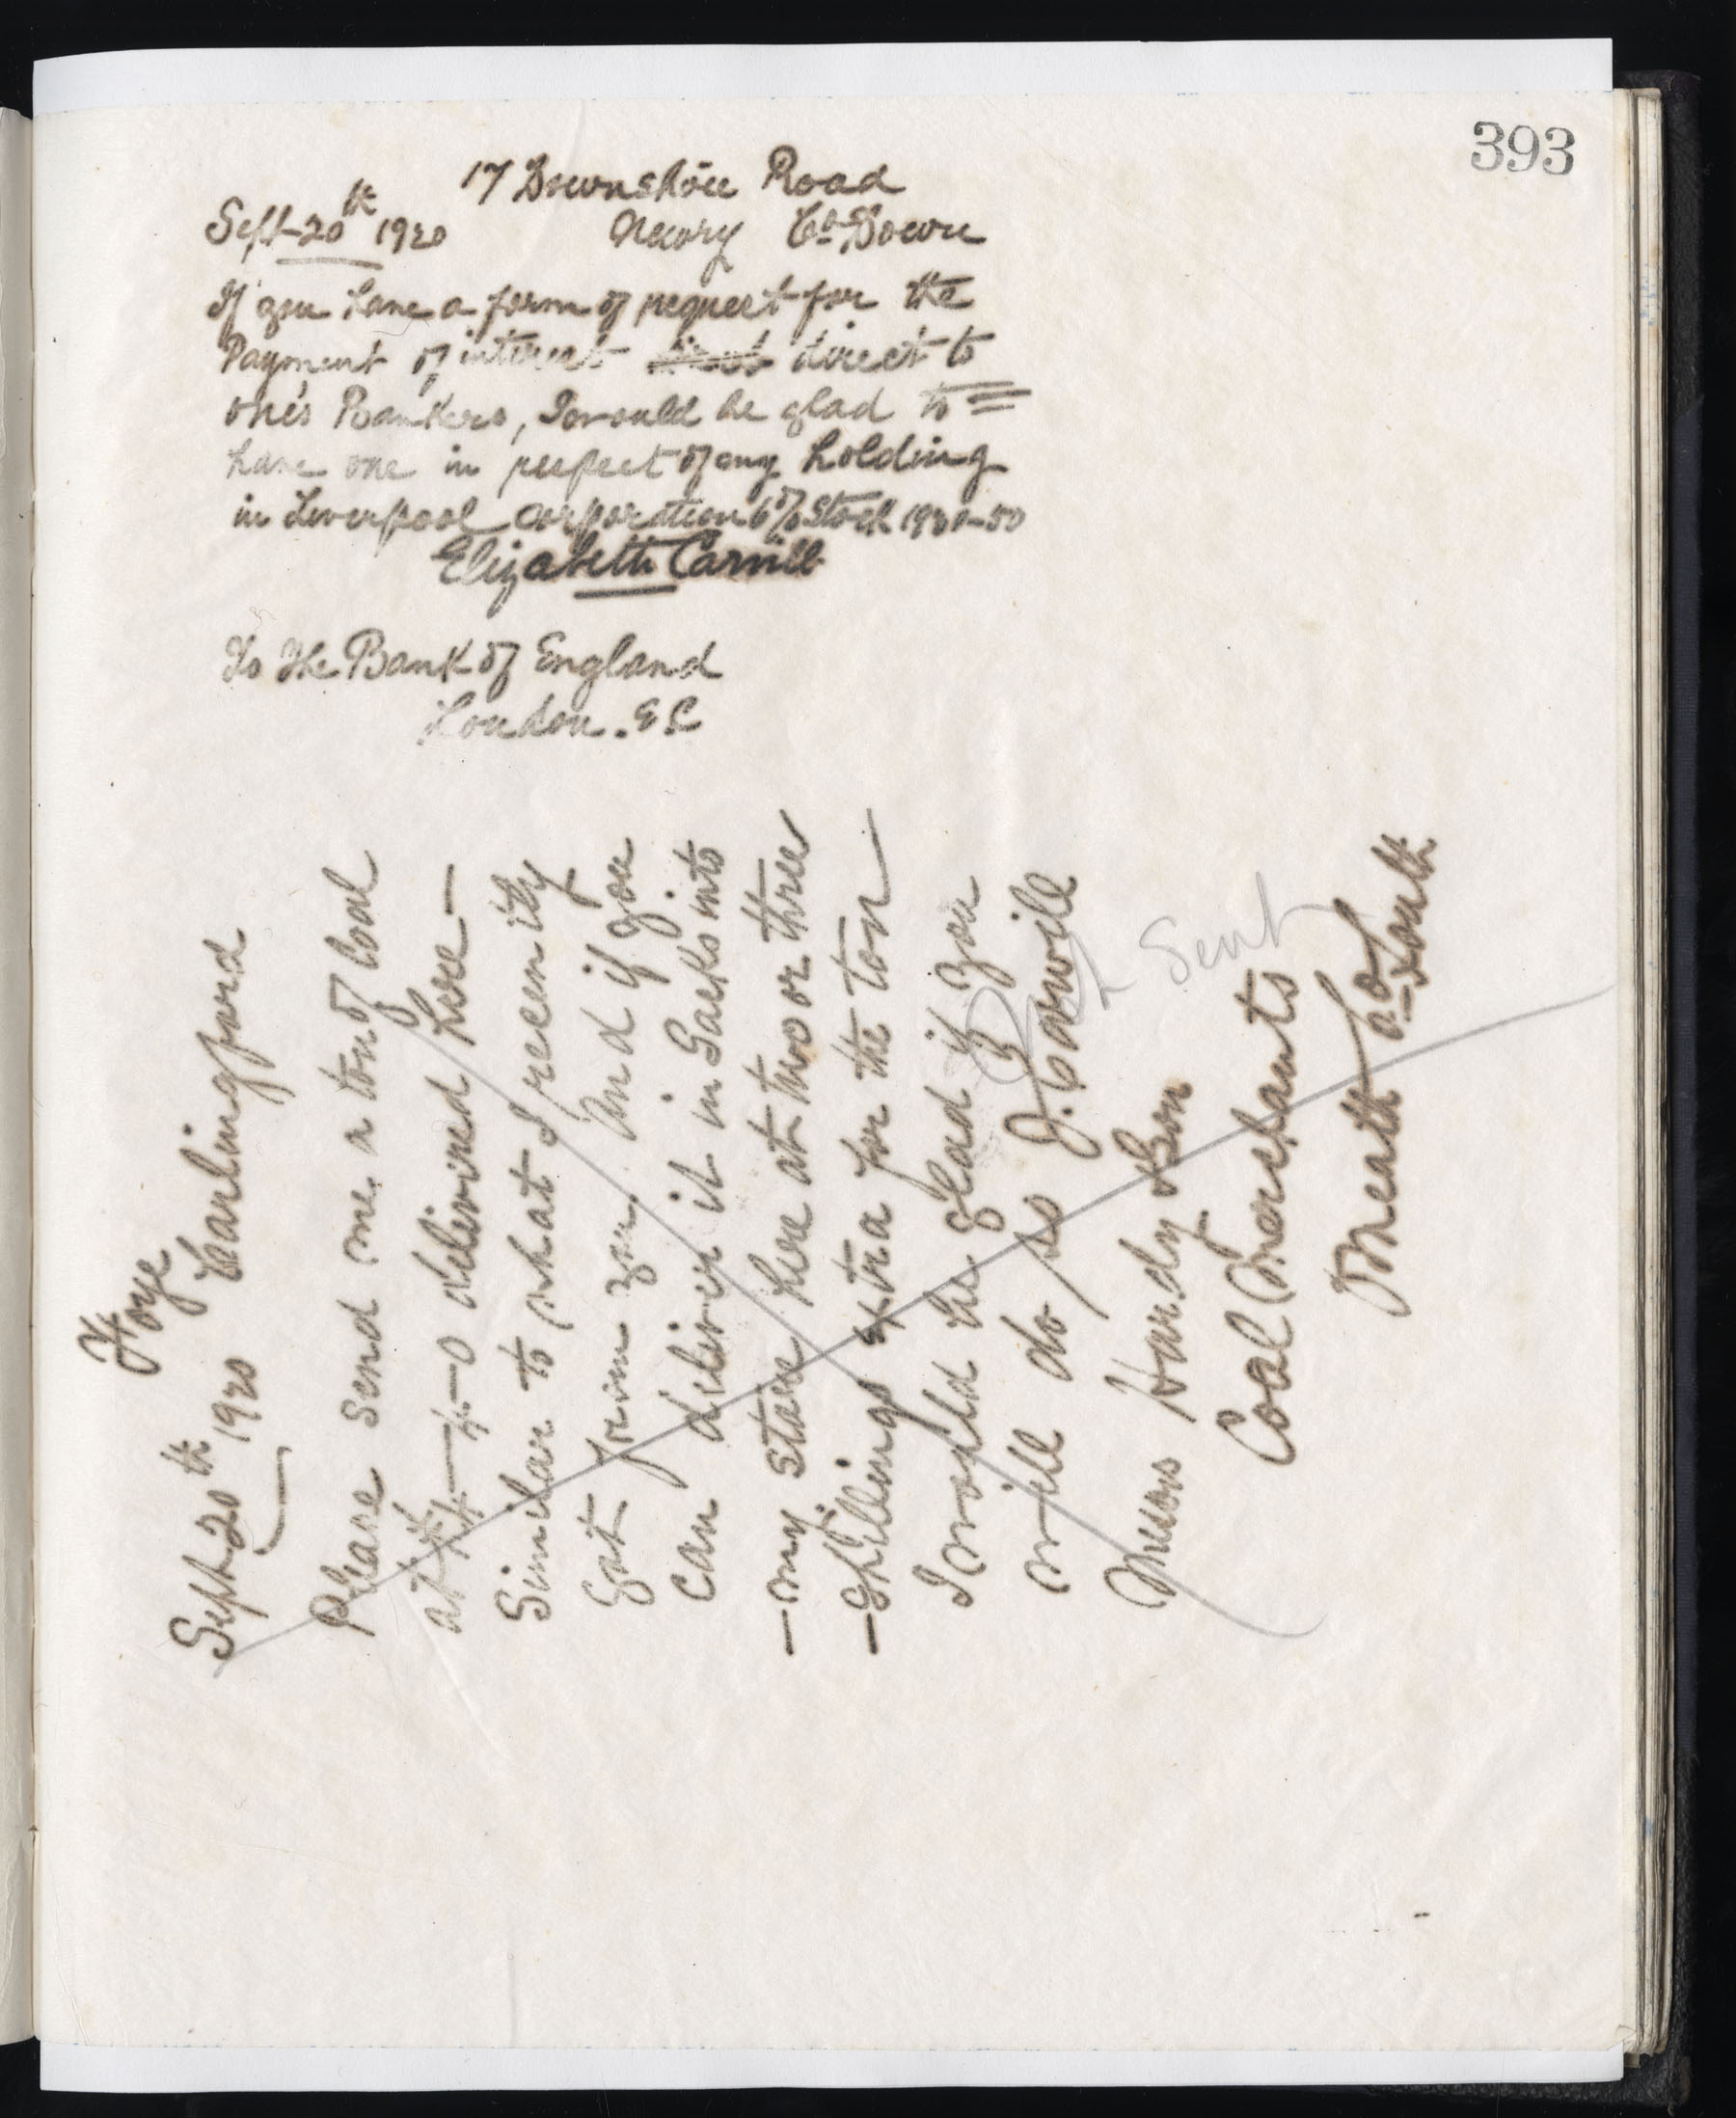 393
17 Downshire Road
Sept 20th 1920 Newry Co Down
If you have a form of request for the
Payment of interest direct to
one's Bankers, I would be glad to
have one in respect of my holding
in Liverpool Corporation 6% Stock 1930-50
Elizabeth Carvill
To The Bank of England
London. E C
Foye
Sept 20th 1920 Carlingford
Please send me a ton of Coal
at delivered here —
Similar to what I recently
got from you. And if you
can deliver it in Sacks into
— my store here at two or three
— Shillings extra for the ton
I would be glad if you
will do so J. Carvill
Not Sent
Messrs Hardy & Son
Coal Merchants
Omeath Co Louth